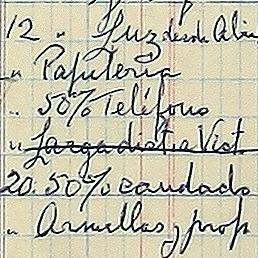 12 " Luz desde Abri
" Papeleria
" 50% Teléfono
" Larga dist a Vict
20. 50% candado
" Armellas y prop